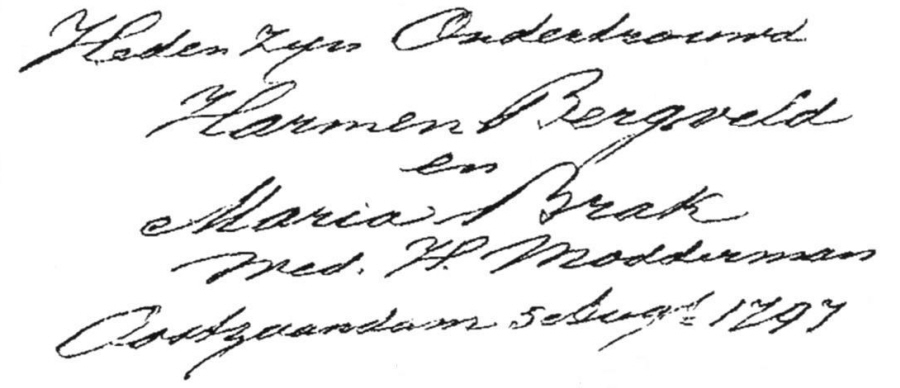 Heden zyn Ondertrouwd
Harmen Bergveld
en
Maria Brak
med. H. Modderman
Oostzaandam 5 Augt 1797